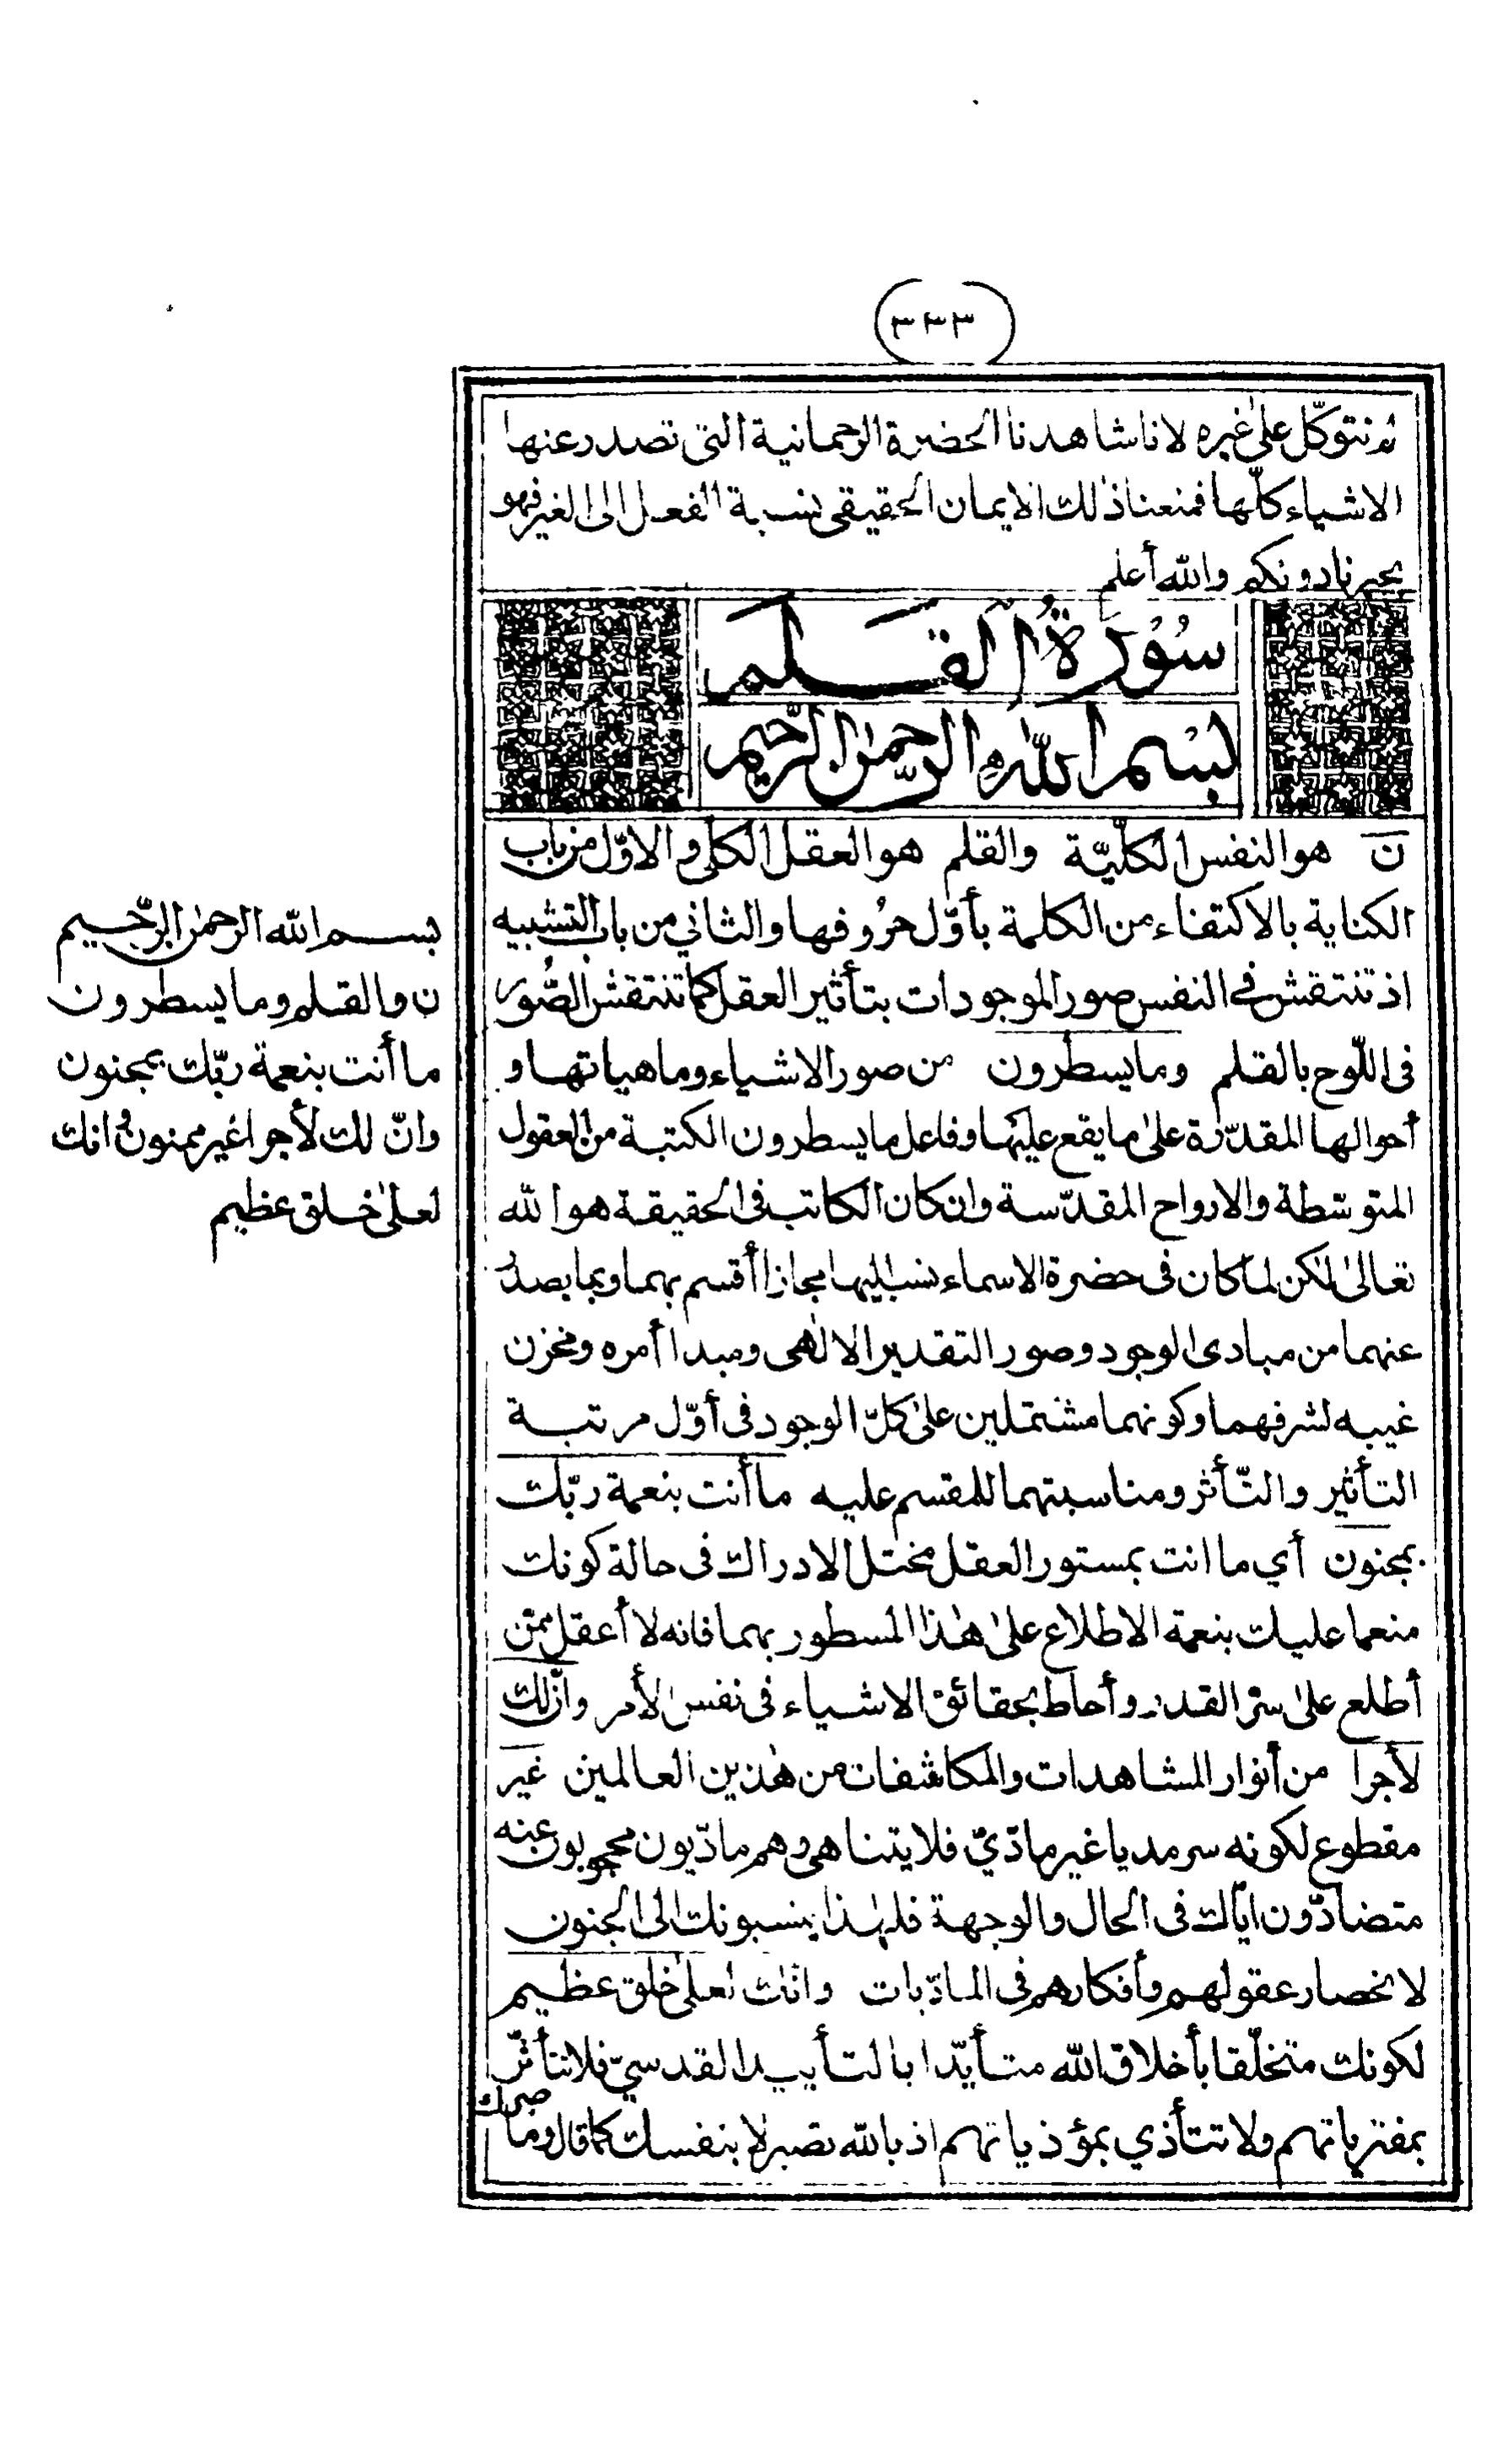 (٣٣٣)
لم نتوكّل على غيره لانا شاهدنا الحضرة الرحمانية التى تصدر عنها
الاشياء كلّها فمنعنا ذلك الايمان الحقيقى بنسبة الفعل الى الغير فهو
يجيرنا دونكم والله أعلم
سُوُرَةُ القَلَم
بسم اللّه الرحمٰن الرّحيم
نَ هو النفس الكلّيّة والقلم هو العقل الكلى والاوّل من باب
الكناية بالاكتفاء من الكلمة بأوّل حروفها والثاني من باب التشبيه
اذ تنتقش في النفس صور الموجودات بتأثير العقل كما تنتقش الصُّور
فى اللّوح بالقلم وما يسطرون من صور الاشياء وماهياتها و
أحوالها المقدّرة على ما يقع عليها وفاعل ما يسطرون الكتبة من العقول
المتوسّطة والارواح المقدّسة وان كان الكاتب فى الحقيقة هو الله
تعالى لكن لما كان فى حضرة الاسماء نسب اليها مجازا أقسم بهما وبما يصدر
عنهما من مبادى الوجود وصور التقدير الالٰهى ومبدا أمره ومخزن
غيبه لشرفهما وكونهما مشتملين على كلّ الوجود فى أوّل مرتبة
التأثير والتّأثر ومناسبتهما للمقسم عليه ما أنت بنعمة ربّك
بمجنون أي ما انت بمستور العقل مختل الادراك فى حالة كونك
منعما عليك بنعمة الاطلاع على هٰذا المسطور بهما فانه لا أعقل ممّن
أطلع على سرّ القدر وأحاط بحقائق الاشياء فى نفس الأمر وانّ لك
لأجرا من أنوار المشاهدات والمكاشفات من هٰذين العالمين غير
مقطوع لكونه سرمديا غير مادّيّ فلا يتناهى وهم مادّيون محجوبون عنه
متضادّون ايّاك فى الحال والوجهة فلهٰذا ينسبونك الى الجنون
لانحصار عقولهم وأفكارهم فى المادّيات وانّك لعلى خلق عظيم
لكونك متخلّقا بأخلاق الله متأيّدا بالتأييد القدسيّ فلا تتأثّر
بمفترياتهم ولا تتأذي بمؤذياتهم اذ بالله تصبر لا بنفسك كما قال وما صبرك
بسم الله الرحمٰن الرّحيم
ن والقلم وما يسطرون
ما أنت بنعمة ربّك بمجنون
وانّ لك لأجرا غير ممنون وانك
لعلىٰ خلق عظيم